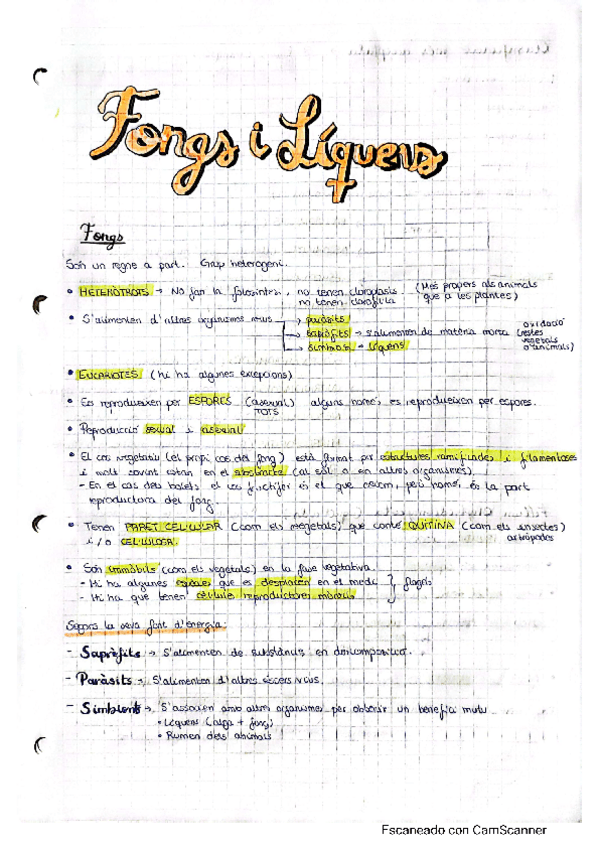 Fongs i Líquens
Fongs
Són un regne a part. Grup heterogeni.
• HETERÒTROFS → No fan la fotosíntesi, no tenen cloroplasts. (Més propers als animals
no tenen clorofil·la que a les plantes)
• S'alimenten d'altres organismes vius → paràsits
→ sapròfits → s'alimenten de matèria morta (restes
vegetals
o animals)
→ simbionts → líquens
• EUCARIOTES (hi ha algunes excepcions)
• Es reprodueixen per ESPORES (asexual) alguns només es reprodueixen per espores.
TOTS
• Reproducció sexual i asexual
• El cos vegetatiu (el propi cos del fong) està format per estructures ramificades i filamentoses
i molt sovint estan en el substrate (al sòl o en altres organismes).
- En el cas dels bolets el cos fructífer és el que veiem, però només és la part
reproductora del fong.
• Tenen PARET CEL·LULAR (com els vegetals) que conté QUITINA (com els insectes)
i/o CEL·LULOSA. artròpodes
• Són immòbils (com els vegetals) en la fase vegetativa
- Hi ha algunes espècies que es desplacen en el medi
- Hi ha que tenen cèl·lules reproductores mòbils
Segons la seva font d'energia:
- Sapròfits → S'alimenten de substàncies en descomposició.
- Paràsits → S'alimenten d'altres éssers vius.
- Simbionts → S'associen amb altres organismes per obtenir un benefici mutu
• Líquens (alga + fong)
• Rumen dels animals
Escaneado con CamScanner